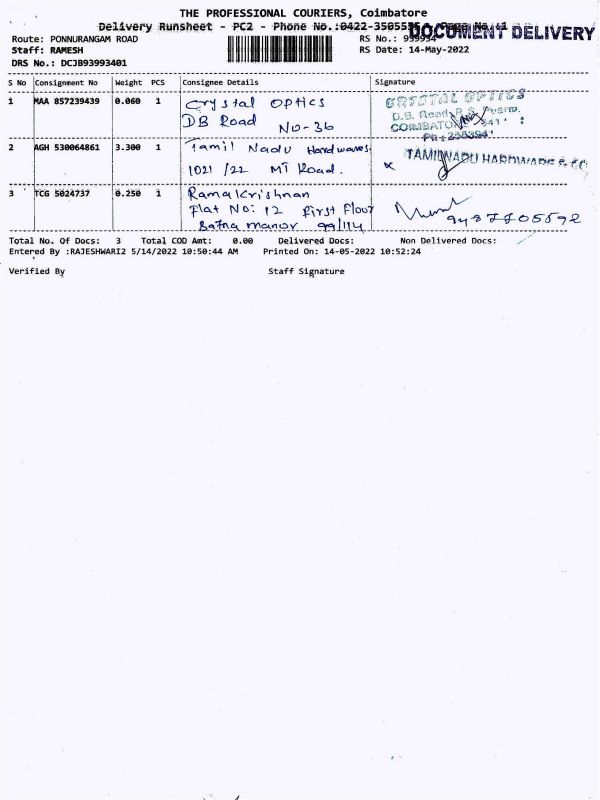 THE PROFESSIONAL COURIERS, Coimbatore
Delivery Runsheet - PC2 - Phone No.:0422-
DOCUMENT DELIVERY
Route: PONNURANGAM ROAD
RS No.: 939934
Staff: RAMESH
RS Date: 14-May-2022
DRS No.: DCJB93993401
S No Consignment No Weight PCS Consignee Details Signature
1 MAA 857239439 0.060 1 Crystal Optics
DB Road No-36
CRYSTAL OPTICS
D.B. Road, R.S. Puram.
2 AGH 530064861 3.300 1 Tamil Nadu Hardwares
1021/22 MT Road.
TAMILNADU HARDWARE & CO
3 TCG 5024737 0.250 1 Ramakrishnan
Flat No: 12 First Floor
manor 99/114
Total No. Of Docs: 3 Total COD Amt: 0.00 Delivered Docs: Non Delivered Docs:
Entered By :RAJESHWARI2 5/14/2022 10:50:44 AM Printed On: 14-05-2022 10:52:24
Verified By Staff Signature